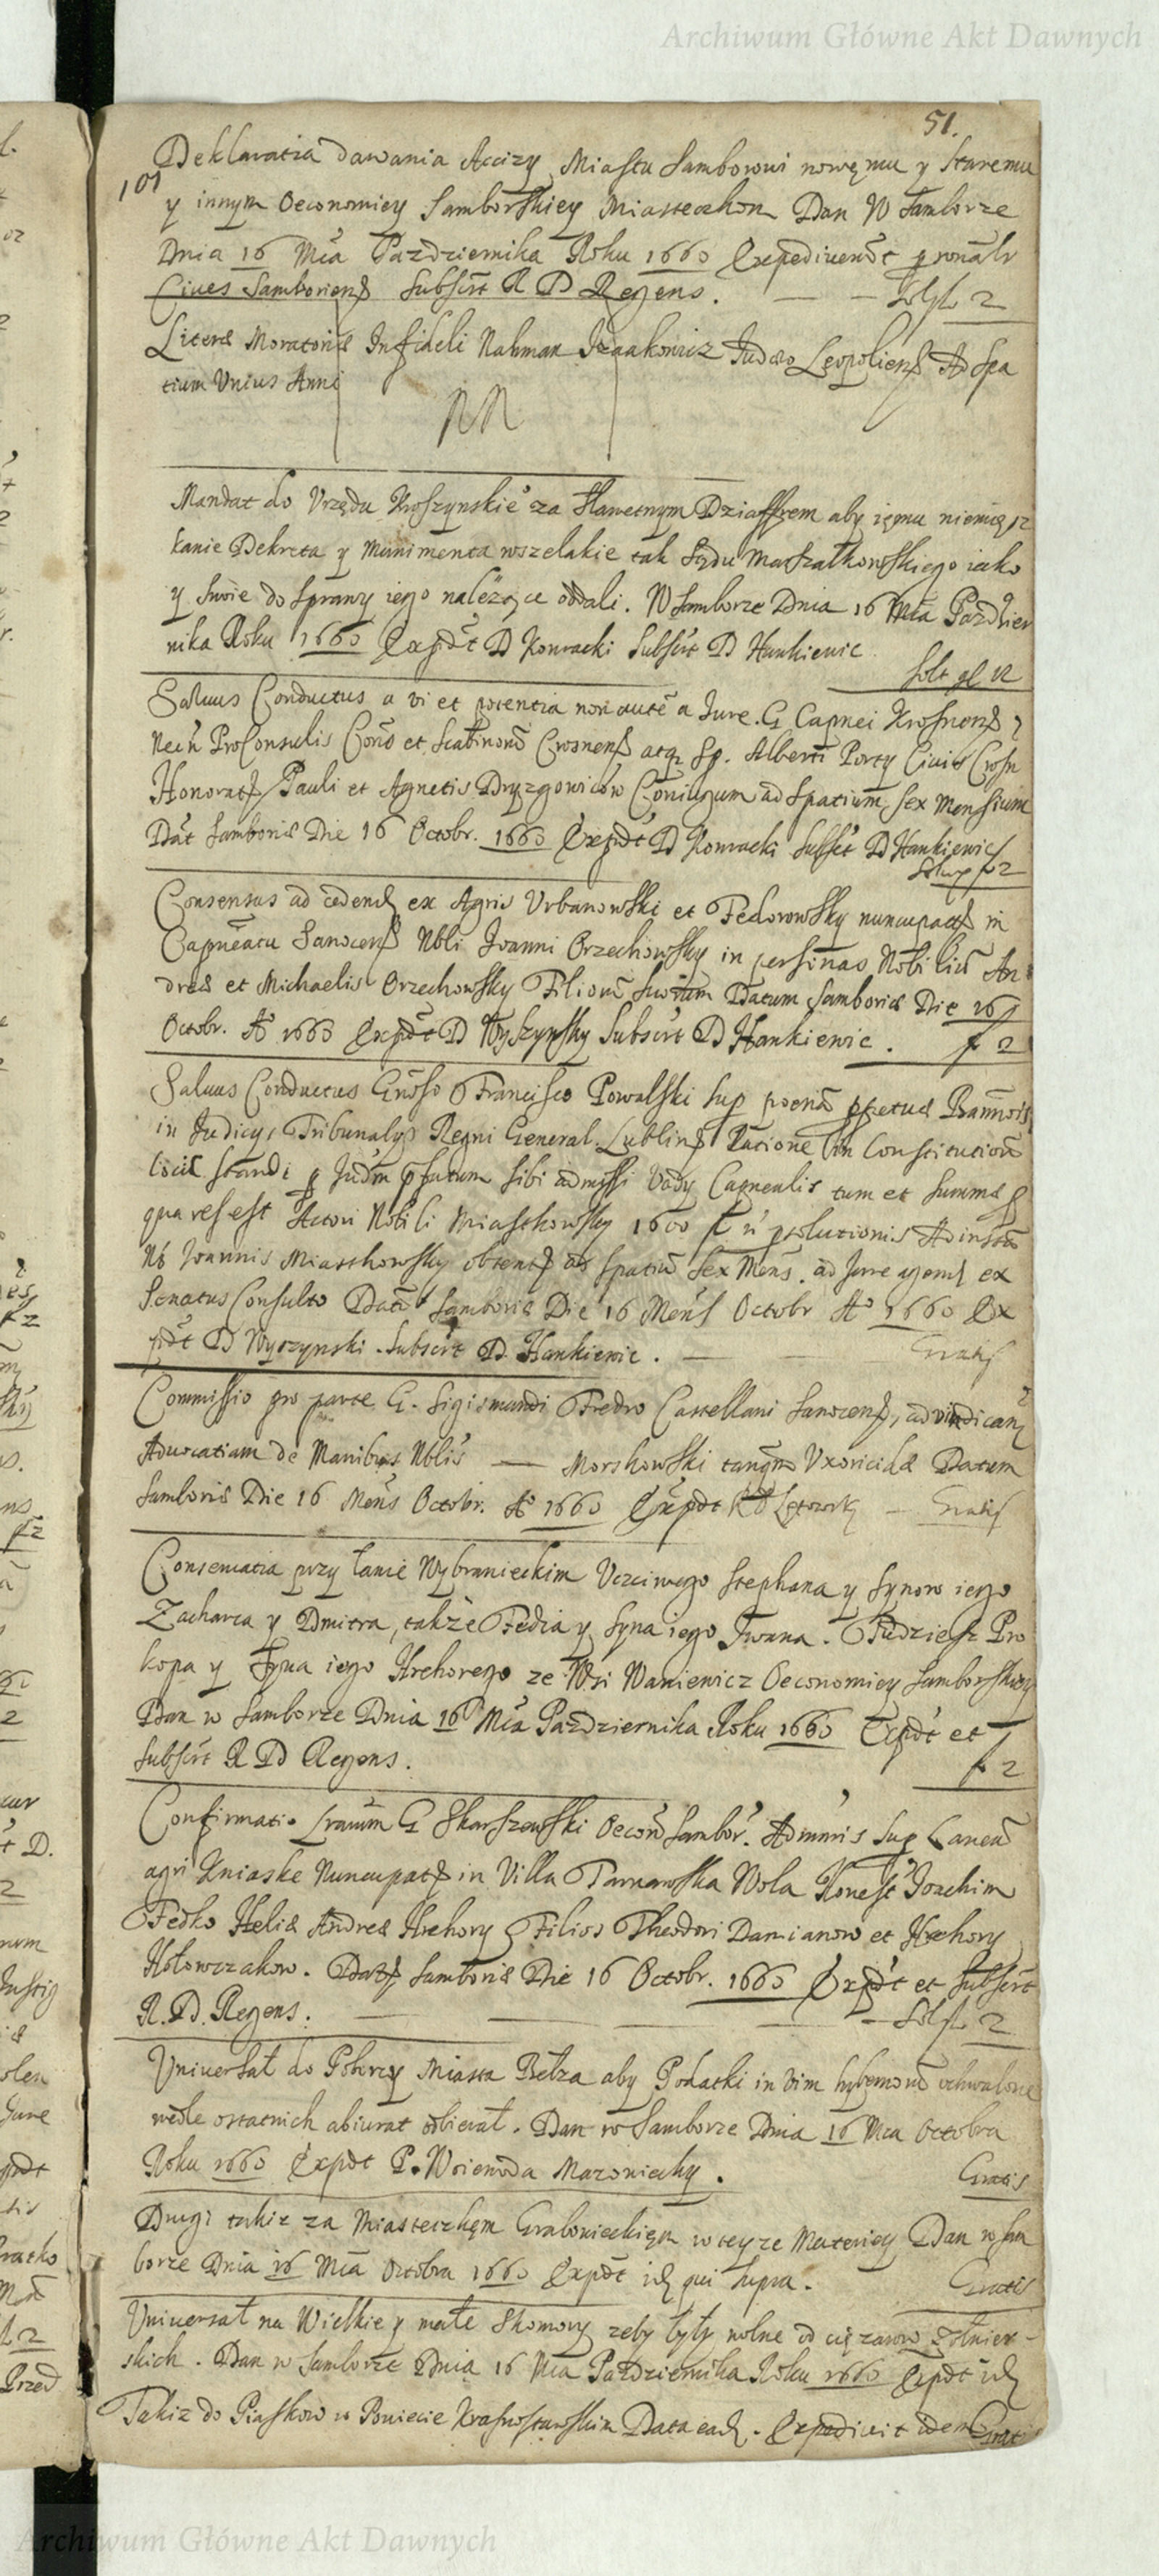 Archiwum Główne Akt Dawnych
51.
101
Deklaratia dawania Accizy Miastu Samborowi nowemu y staremu
y innym Oeconomiey Samborskiey Miasteczkom Dan W Samborze
Dnia 16 Mca Pazdziernika Roku 1660
Cives Samboriens Subscrt R D Regens. Sol fl 2
Litera Moratoria Infideli Nahman Izaakowicz Judaeo Leopoliens Ad Spa
tium Unius Anni
NN
Mandat do Vrzędu Kroszynskie za Sławetnym aby iemu
Dekreta y Munimenta wszelakie tak Sądu Marszałkowskiego iako
y swoie do sprawy iego należące oddali. W Samborze Dnia 16 Mca Pazdzier
nika Roku 1660 Expdt D Konracki Subscrt D Hankiewic
Salvus Conductus a vi et potentia non autē a Jure. G Capnei Krosnens
Necn ProConsulis Cons et Scabinorū Crosnens atq Sp. Alberti Porty Civis Crosn
Honorat Pauli et Agnetis Dryzgowicow Coniugum ad Spatium Sex Mensium
Dat Samboriae Die 16 Octobr. 1660 Expdt D Konracki Subscrt D Hankiewic
f 2
Consensus ad cedend ex Agris Urbanowski et Fedorowsky nuncupat in
Capneatu Sanocens Nbli Joanni Orzechowsky in personas Nobiliū An
dreae et Michaelis Orzechowsky Filiorū Suorum Datum Samboriae Die 16
Octobr. Ao 1660 Expdt D Wyszynsky Subscrt D Hankiewic. f 2
Salvus Conductus Gnoso Francisco Powalski sup poenā ppetuae Bannois
in Judicys Tribunalys Regni General. Lublin Ratione in Constitutionū
standi p Jud pfatum sibi admissi Vady Capnealis tum et Summae p
qua res est Actori Nobili Miastkowsky 1600 fl n psolutionis Ad instā
Nb Joannis Miastkowsky obtent ad spatiū Sex Mens. ad Jure agend ex
Senatus Consulto Datū Samboriae Die 16 Mens Octobr Ao 1660 Ex
pdt D Wyszynski. Subscrt D. Hankiewic. Gratis
Commissio pro parte G. Sigismundi Fredro Castellani Sanocens, ad vindicand
Advocatiam de Manibus Nblis — Morskowski tanqm Uxoricidae Datum
Samboriae Die 16 Mens Octobr. Ao 1660 Expdt R D Łętowsky — Gratis
Conserwatia przy łanie Wybranieckim Uczciwego Stephana y Synow iego
Zacharca y Dmitra, także Fedia y syna iego Iwana. Tudziesz Pro
kopa y Syna iego Hrehorego ze Wsi Waniewicz Oeconomiey Samborskiey
Dan w Samborze Dnia 16 Mca Pazdziernika Roku 1660 Expdt et
Subscrt R D Regens. f 2
Confirmatio Lrarum G Skarszewski Oecon Sambor. Admnris Sup Laneū
agri Kniaske Nuncupat in Villa Tarnawska Wola Honest Joachim
Fedko Helias Andreas Hrehory Filios Theodori Damianow et Hrehory
Hołowczakow. Dat Samboriae Die 16 Octobr. 1660 Expdt et Subscrt
R. D. Regens. Sol fl 2
Uniwersał do Poborcy Miasta Bełza aby Podatki in vim hybernorū uchwalone
wedle ostatnich abiurat odbierał. Dan w Samborze Dnia 16 Mca Octobra
Roku 1660 Expdt P. Woiewoda Mazowiecky. Gratis
Drugi takiz za Miasteczkem Grabowieckiem w teyze Materiey Dan w Sam
borze Dnia 16 Mca Octobra 1660 Expdt id qui supra. Gratis
Uniwersał na Wielkie y małe Skomory zeby były wolne od cięzarow zołnier-
skich. Dan w Samborze Dnia 16 Mca Pazdziernika Roku 1660 Expdt id
Takiz do Piaskow w Powiecie Krasnostawskim Data ead. Expedivit idem Gratis
Archiwum Główne Akt Dawnych